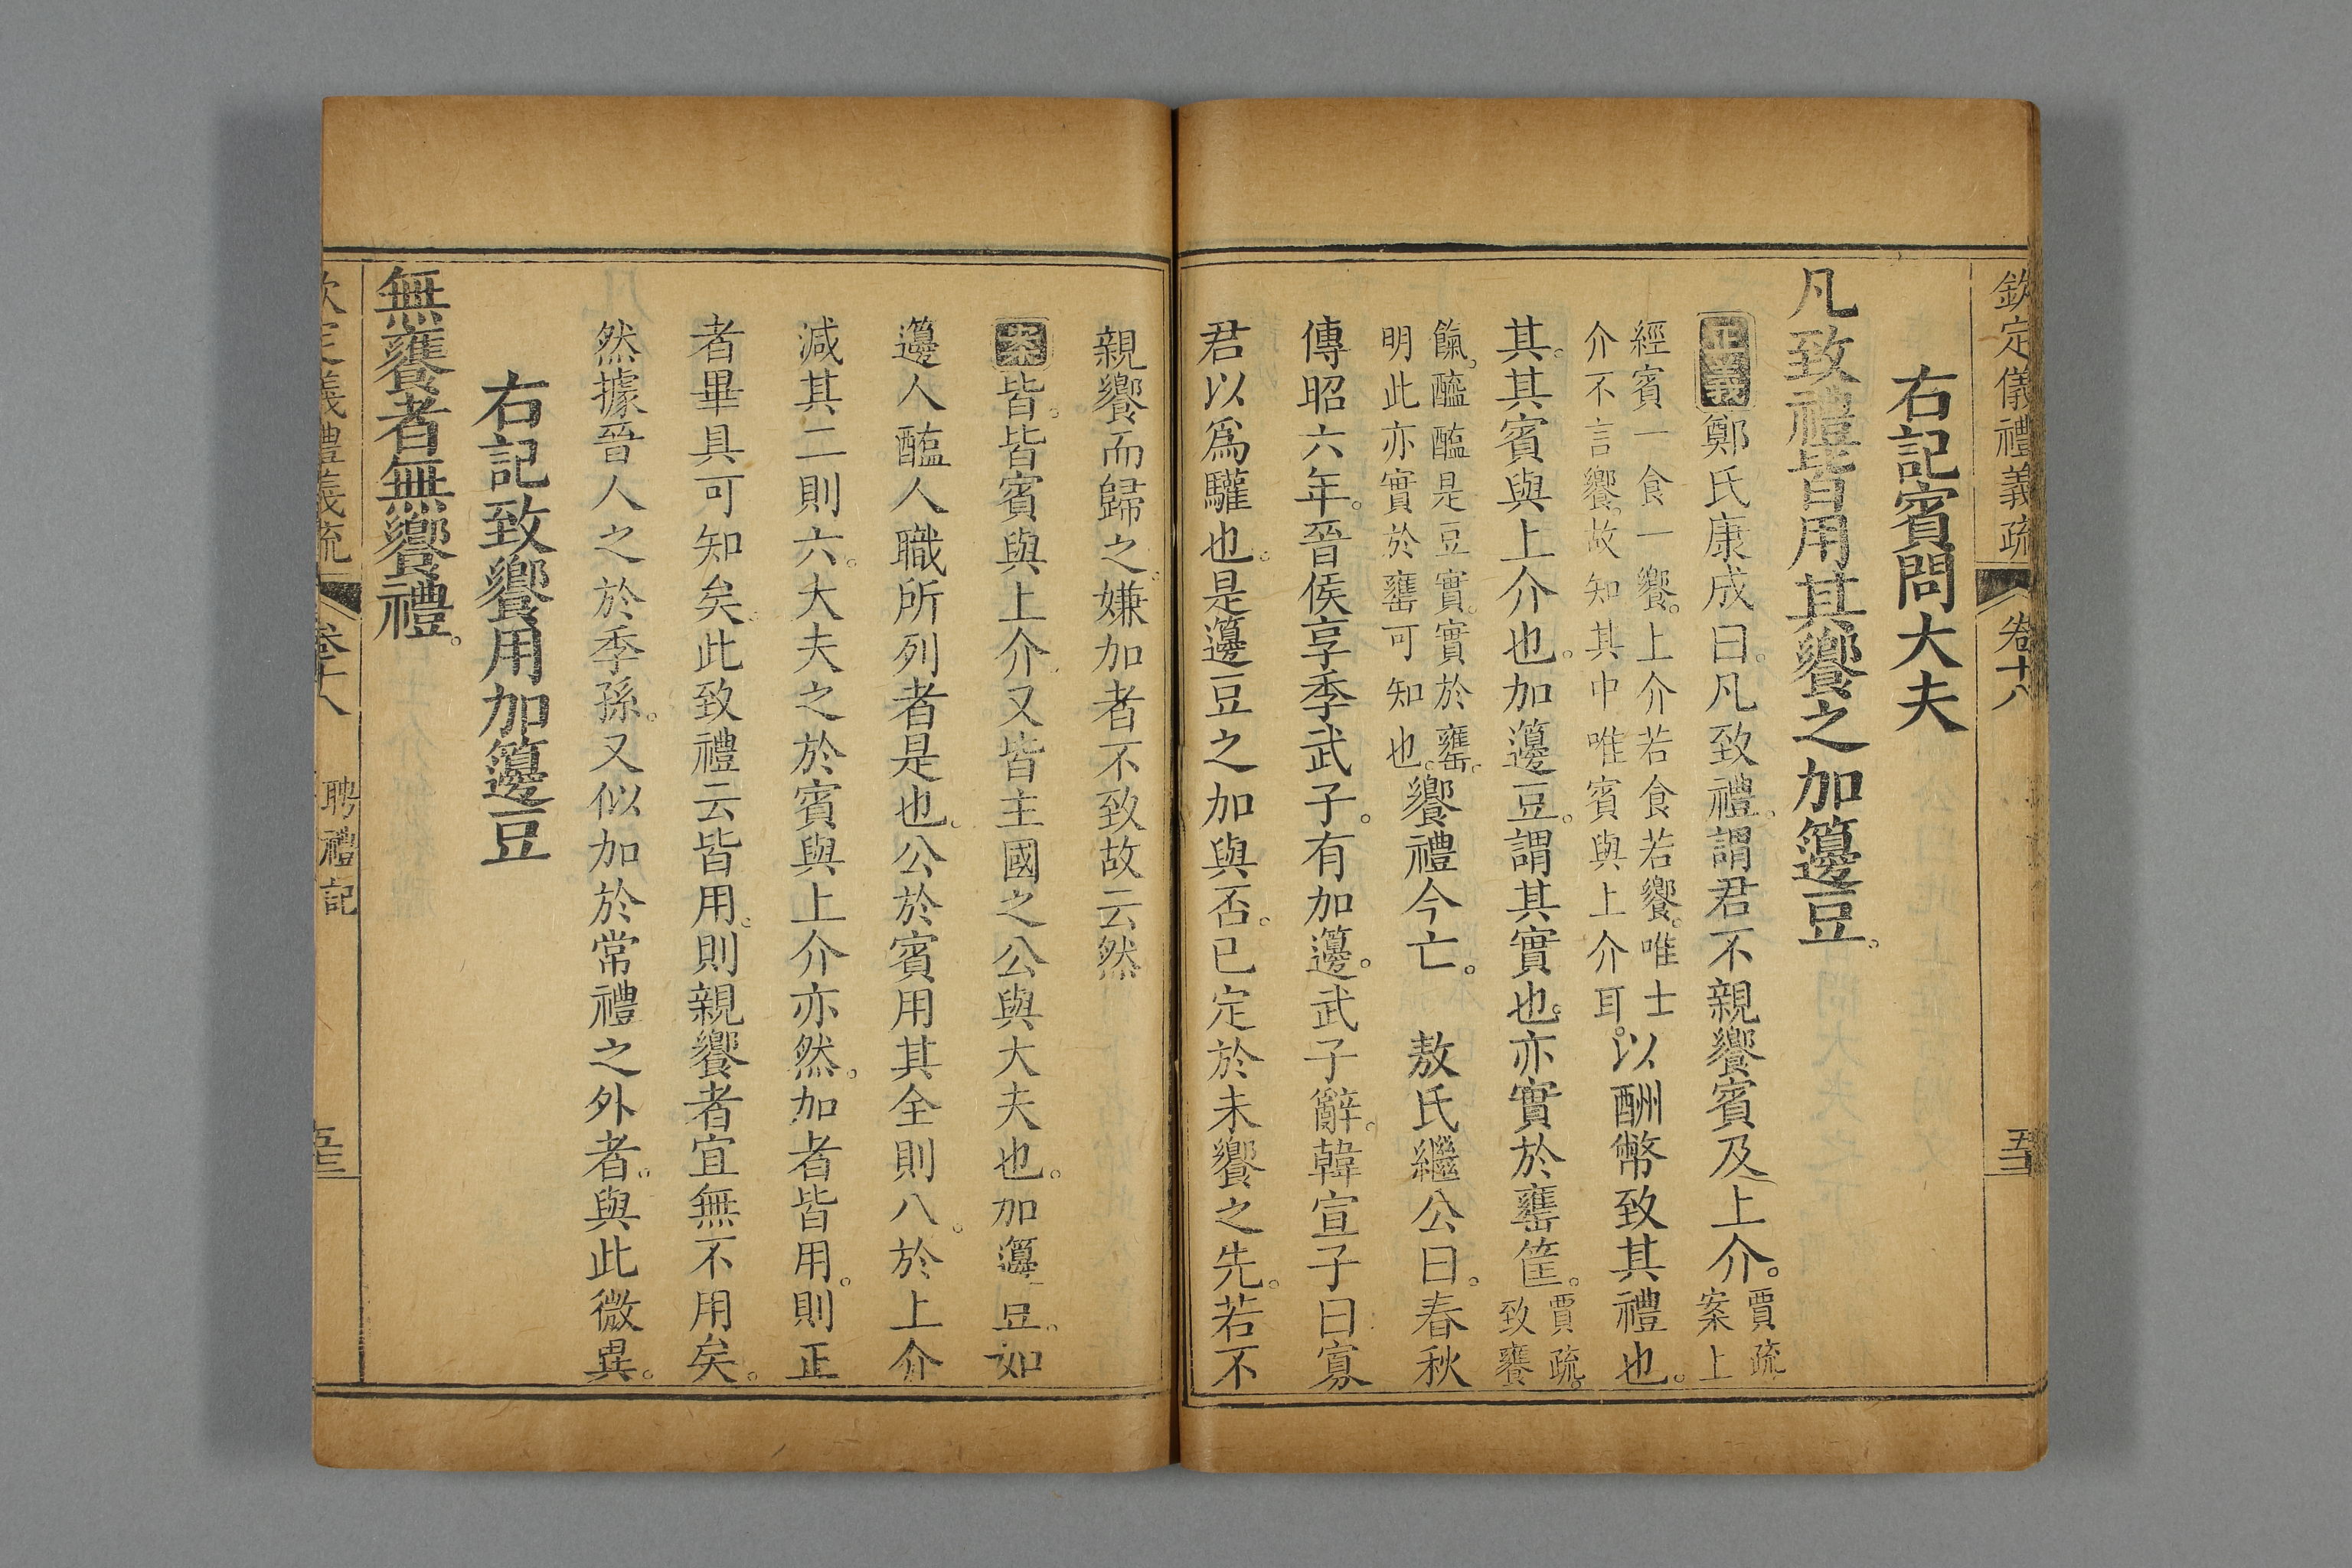 欽定儀禮義疏 卷十八 五二
右記賓問大夫
凡致禮皆用其饗之加籩豆。
正義鄭氏康成曰。凡致禮。謂君不親饗賓及上介。賈疏
案上
經賓一食一饗。上介若食若饗。唯士
介不言饗。故知其中唯賓與上介耳。以酬幣致其禮也。
其。其賓與上介也。加籩豆。謂其實也。亦實於罋筐。賈疏。
致饔
餼。醯醢是豆實。實於罋。
明此亦實於罋可知也。饗禮今亡。 敖氏繼公曰。春秋
傳昭六年。晉侯享季武子。有加籩。武子辭。韓宣子曰寡
君以爲驩也。是籩豆之加與否。已定於未饗之先。若不
親饗而歸之。嫌加者不致故云然
案皆。皆賓與上介。又皆主國之公與大夫也。加籩豆。如
籩人醢人職所列者是也。公於賓用其全則八。於上介
減其二則六。大夫之於賓與上介亦然。加者皆用。則正
者畢具可知矣。此致禮云皆用。則親饗者宜無不用矣。
然據晉人之於季孫。又似加於常禮之外者。與此微異。
右記致饗用加籩豆
無饔者無饗禮。
欽定儀禮義疏 卷十八 聘禮記 五三